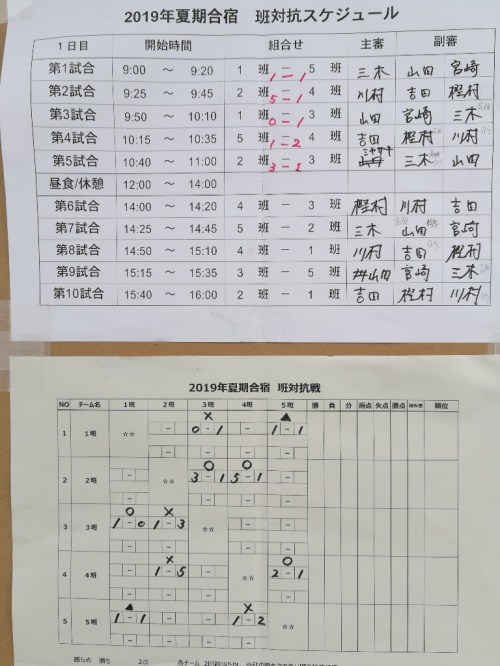 2019年夏期合宿 班対抗スケジュール
1日目 開始時間 組合せ 主審 副審
第1試合 9:00 ～ 9:20 1 班 － 5 班 1-1 三木 山田 宮崎
第2試合 9:25 ～ 9:45 2 班 － 4 班 5-1 川村 吉田 樫村
第3試合 9:50 ～ 10:10 1 班 － 3 班 0-1 山田 宮崎 三木
第4試合 10:15 ～ 10:35 5 班 － 4 班 1-2 吉田 樫村 川村
第5試合 10:40 ～ 11:00 2 班 － 3 班 3-1 ミヤザキ 三木 山田
昼食/休憩 12:00 ～ 14:00
第6試合 14:00 ～ 14:20 4 班 － 3 班 樫村 川村 吉田
第7試合 14:25 ～ 14:45 5 班 － 2 班 三木 山田 宮崎
第8試合 14:50 ～ 15:10 4 班 － 1 班 川村 吉田 樫村
第9試合 15:15 ～ 15:35 3 班 － 5 班 山田 宮崎 三木
第10試合 15:40 ～ 16:00 2 班 － 1 班 吉田 樫村 川村
2019年夏期合宿 班対抗戦
NO チーム名 1班 2班 3班 4班 5班 勝 負 分 得点 失点 勝点 順位
1 1班 ☆☆ - × 0-1 - ▲ 1-1
2 2班 - ☆☆ ○ 3-1 ○ 5-1 -
3 3班 ○ 1-0 × 1-3 ☆☆ - -
4 4班 - × 1-5 - ☆☆ ○ 2-1
5 5班 ▲ 1-1 - - × 1-2 ☆☆
勝ち点 勝ち 2点